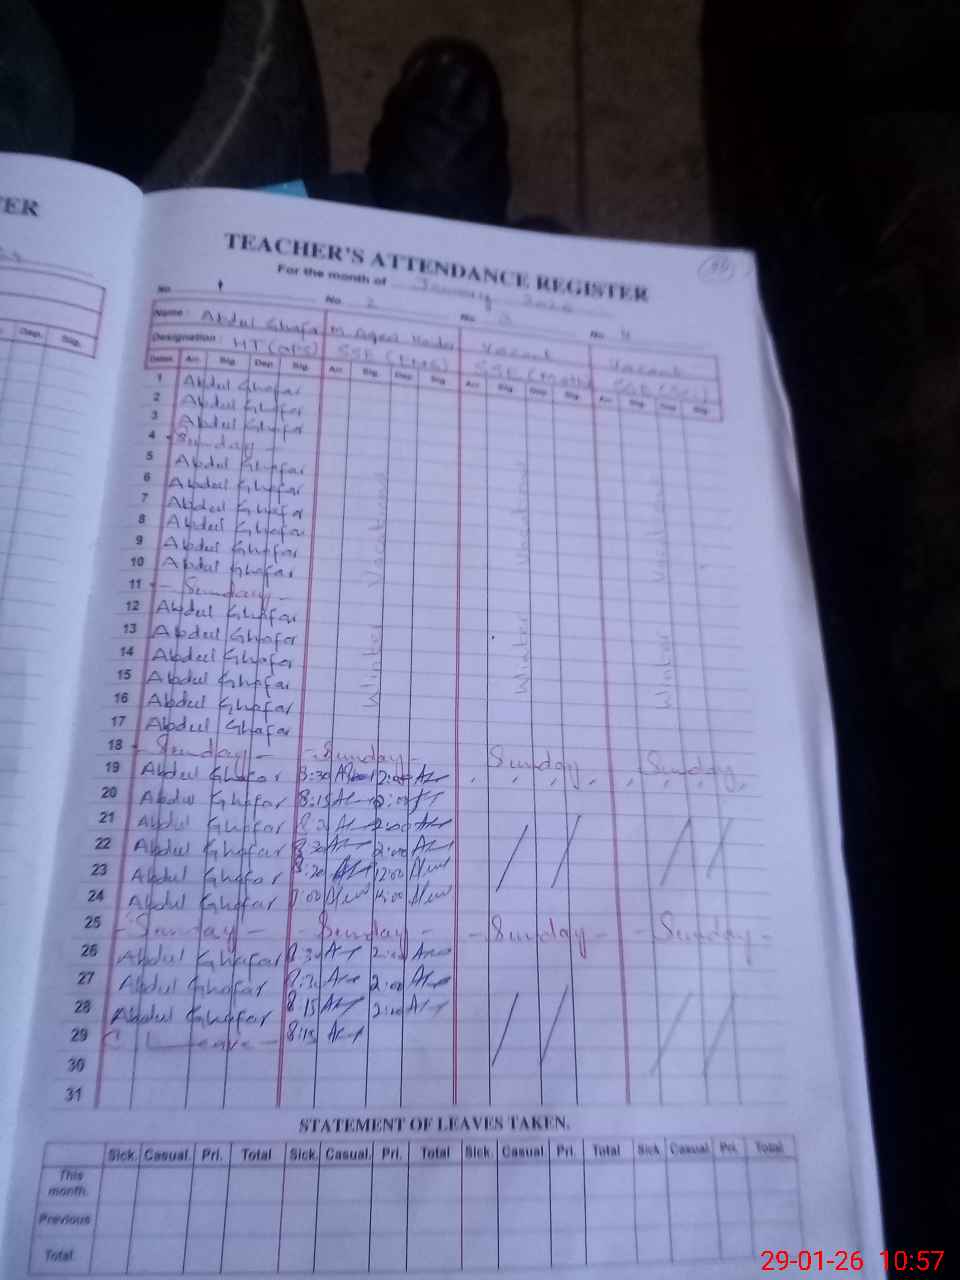 ER
Dep. Sig.
TEACHER'S ATTENDANCE REGISTER
For the month of January 2026
No. 1 No. 2 No. 3 No. 4
Name: Abdul Ghafar M Aqeel Haider Vacant Vacant
Designation: HT SSE SSE (Math) SSE
Dates Arr. Sig. Dep. Sig. Arr. Sig. Dep. Sig. Arr. Sig. Dep. Sig. Arr. Sig. Dep. Sig.
1 Abdul Ghafar
2 Abdul Ghafar
3 Abdul Ghafar
4 - Sunday -
5 Abdul Ghafar
6 Abdul Ghafar
7 Abdul Ghafar
8 Abdul Ghafar
9 Abdul Ghafar
10 Abdul Ghafar
11 - Sunday -
12 Abdul Ghafar
13 Abdul Ghafar
14 Abdul Ghafar
15 Abdul Ghafar
16 Abdul Ghafar
17 Abdul Ghafar
Winter Vacations
Winter Vacations
Winter Vacations
18 - Sunday - - Sunday - Sunday Sunday
19 Abdul Ghafar 8:30 2:00
20 Abdul Ghafar 8:15 2:00
21 Abdul Ghafar 2:00
22 Abdul Ghafar 8:30 2:00
23 Abdul Ghafar 8:20 12:00
24 Abdul Ghafar
25 - Sunday - - Sunday - - Sunday - - Sunday -
26 Abdul Ghafar 8:30 2:00
27 Abdul Ghafar 8:30 2:00
28 Abdul Ghafar 8:15 2:00
29 C Leave - 8:15
30
31
STATEMENT OF LEAVES TAKEN.
Sick. Casual. Pri. Total Sick. Casual. Pri. Total Sick. Casual. Pri. Total Sick. Casual. Pri. Total
This month.
Previous
Total
29-01-26 10:57